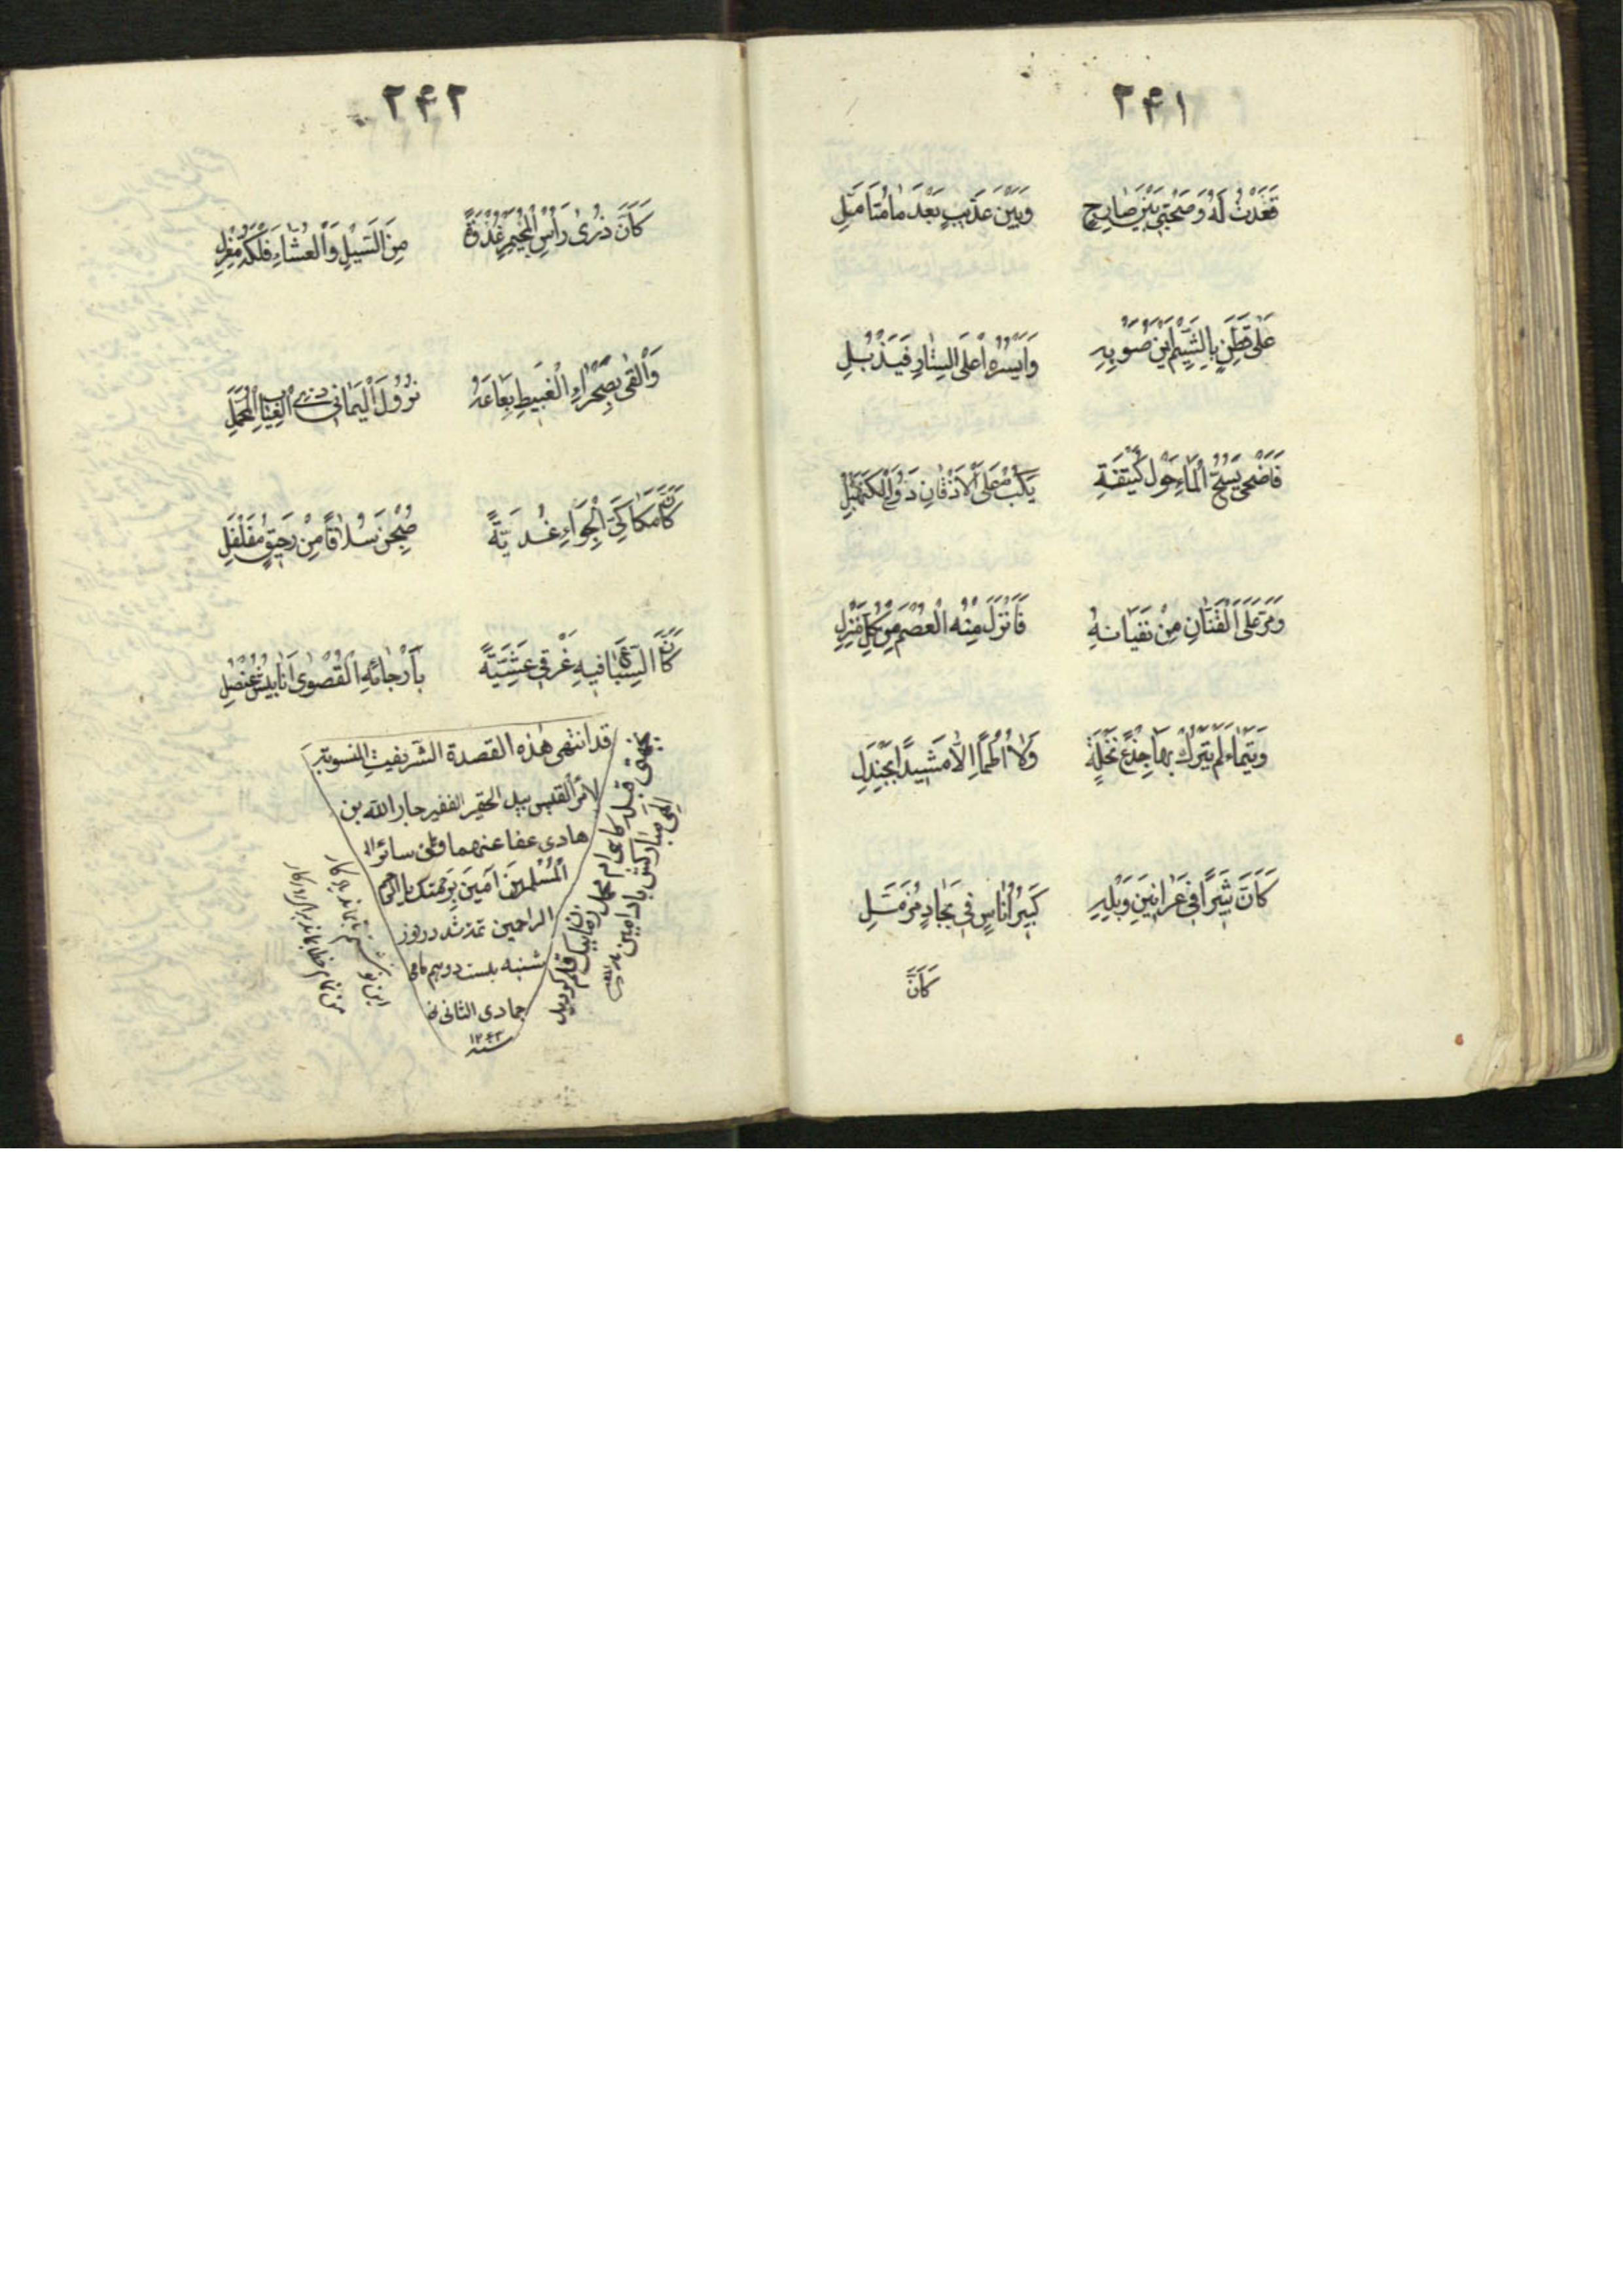 ۲۴۱
قَعَدْتُ لَهُ وَصُحْبَتِي بَيْنَ ضَارِجٍ وَبَيْنَ عُذَيْبٍ بَعْدَ مَا مُتَأَمَّلِ
عَلَى قَطَنٍ بِالشَّيْمِ أَيْمَنُ صَوْبِهِ وَأَيْسَرُهُ أَعْلَى السِّتَارِ فَيَذْبُلِ
فَأَضْحَى يَسُحُّ الْمَاءَ حَوْلَ كُتَيْفَةٍ يَكُبُّ عَلَى الْأَذْقَانِ دَوْحَ الْكَنَهْبَلِ
وَمَرَّ عَلَى الْقَنَانِ مِنْ نَفَيَانِهِ فَأَنْزَلَ مِنْهُ الْعُصْمَ مِنْ كُلِّ مَنْزِلِ
وَتَيْمَاءَ لَمْ يَتْرُكْ بِهَا جِذْعَ نَخْلَةٍ وَلَا أُطُمًا إِلَّا مَشِيدًا بِجَنْدَلِ
كَأَنَّ ثَبِيرًا فِي عَرَانِينَ وَبْلِهِ كَبِيرُ أُنَاسٍ فِي بِجَادٍ مُزَمَّلِ
كَأَنَّ
۲۴۲
كَأَنَّ ذُرَى رَأْسِ الْمُجَيْمِرِ غُدْوَةً مِنَ السَّيْلِ وَالْغُثَّاءِ فَلْكَةُ مِغْزَلِ
وَأَلْقَى بِصَحْرَاءِ الْغَبِيطِ بَعَاعَهُ نُزُولَ الْيَمَانِي ذِي الْعِيَابِ الْمُحَمَّلِ
كَأَنَّ مَكَاكِيَّ الْجِوَاءِ غُدَيَّةً صُبِحْنَ سُلَافًا مِنْ رَحِيقٍ مُفَلْفَلِ
كَأَنَّ السِّبَاعَ فِيهِ غَرْقَى عَشِيَّةً بِأَرْجَائِهِ الْقُصْوَى أَنَابِيشُ عُنْصُلِ
قد انتهى هذه القصدة الشريفت المنسوبة
لامرأ القيس بيد الحقير الفقير جار الله بن
هادى عفا عنهما وعن سائر ال
المسلمين آمين برحمتك يا ارحم
الراحمين تمت شد در روز
شنبه بيست دويم ماه
جمادى الثانى
سنه ۱۲۴۳
الهى مباركش باد آمين
اين نوشتم تا بماند يادگار
من نمانم خط بماند يادگار